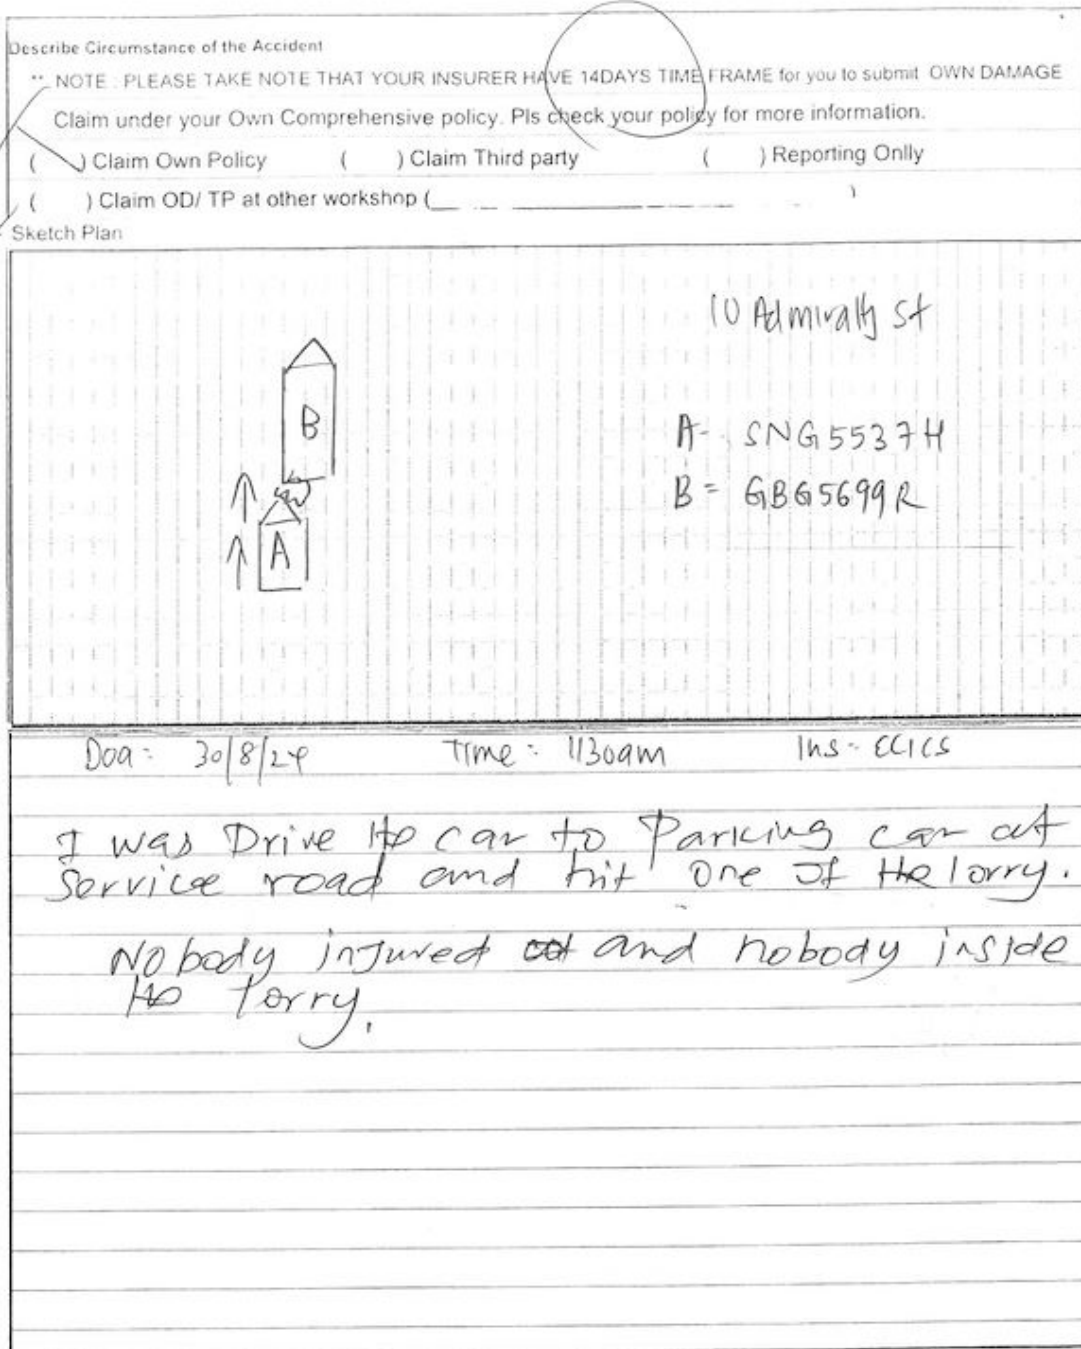 Describe Circumstance of the Accident
** NOTE : PLEASE TAKE NOTE THAT YOUR INSURER HAVE 14DAYS TIME FRAME for you to submit OWN DAMAGE
Claim under your Own Comprehensive policy. Pls check your policy for more information.
( ) Claim Own Policy ( ) Claim Third party ( ) Reporting Onlly
( ) Claim OD/ TP at other workshop (__________)
Sketch Plan
10 Admiralty St
B
A - SNG5537H
B = GBG5699R
A
DOA: 30/8/24 Time: 1130am Ins - ECICS
I was Drive the car to Parking car at
Service road and hit one of the lorry.
Nobody injured and nobody inside
the lorry.